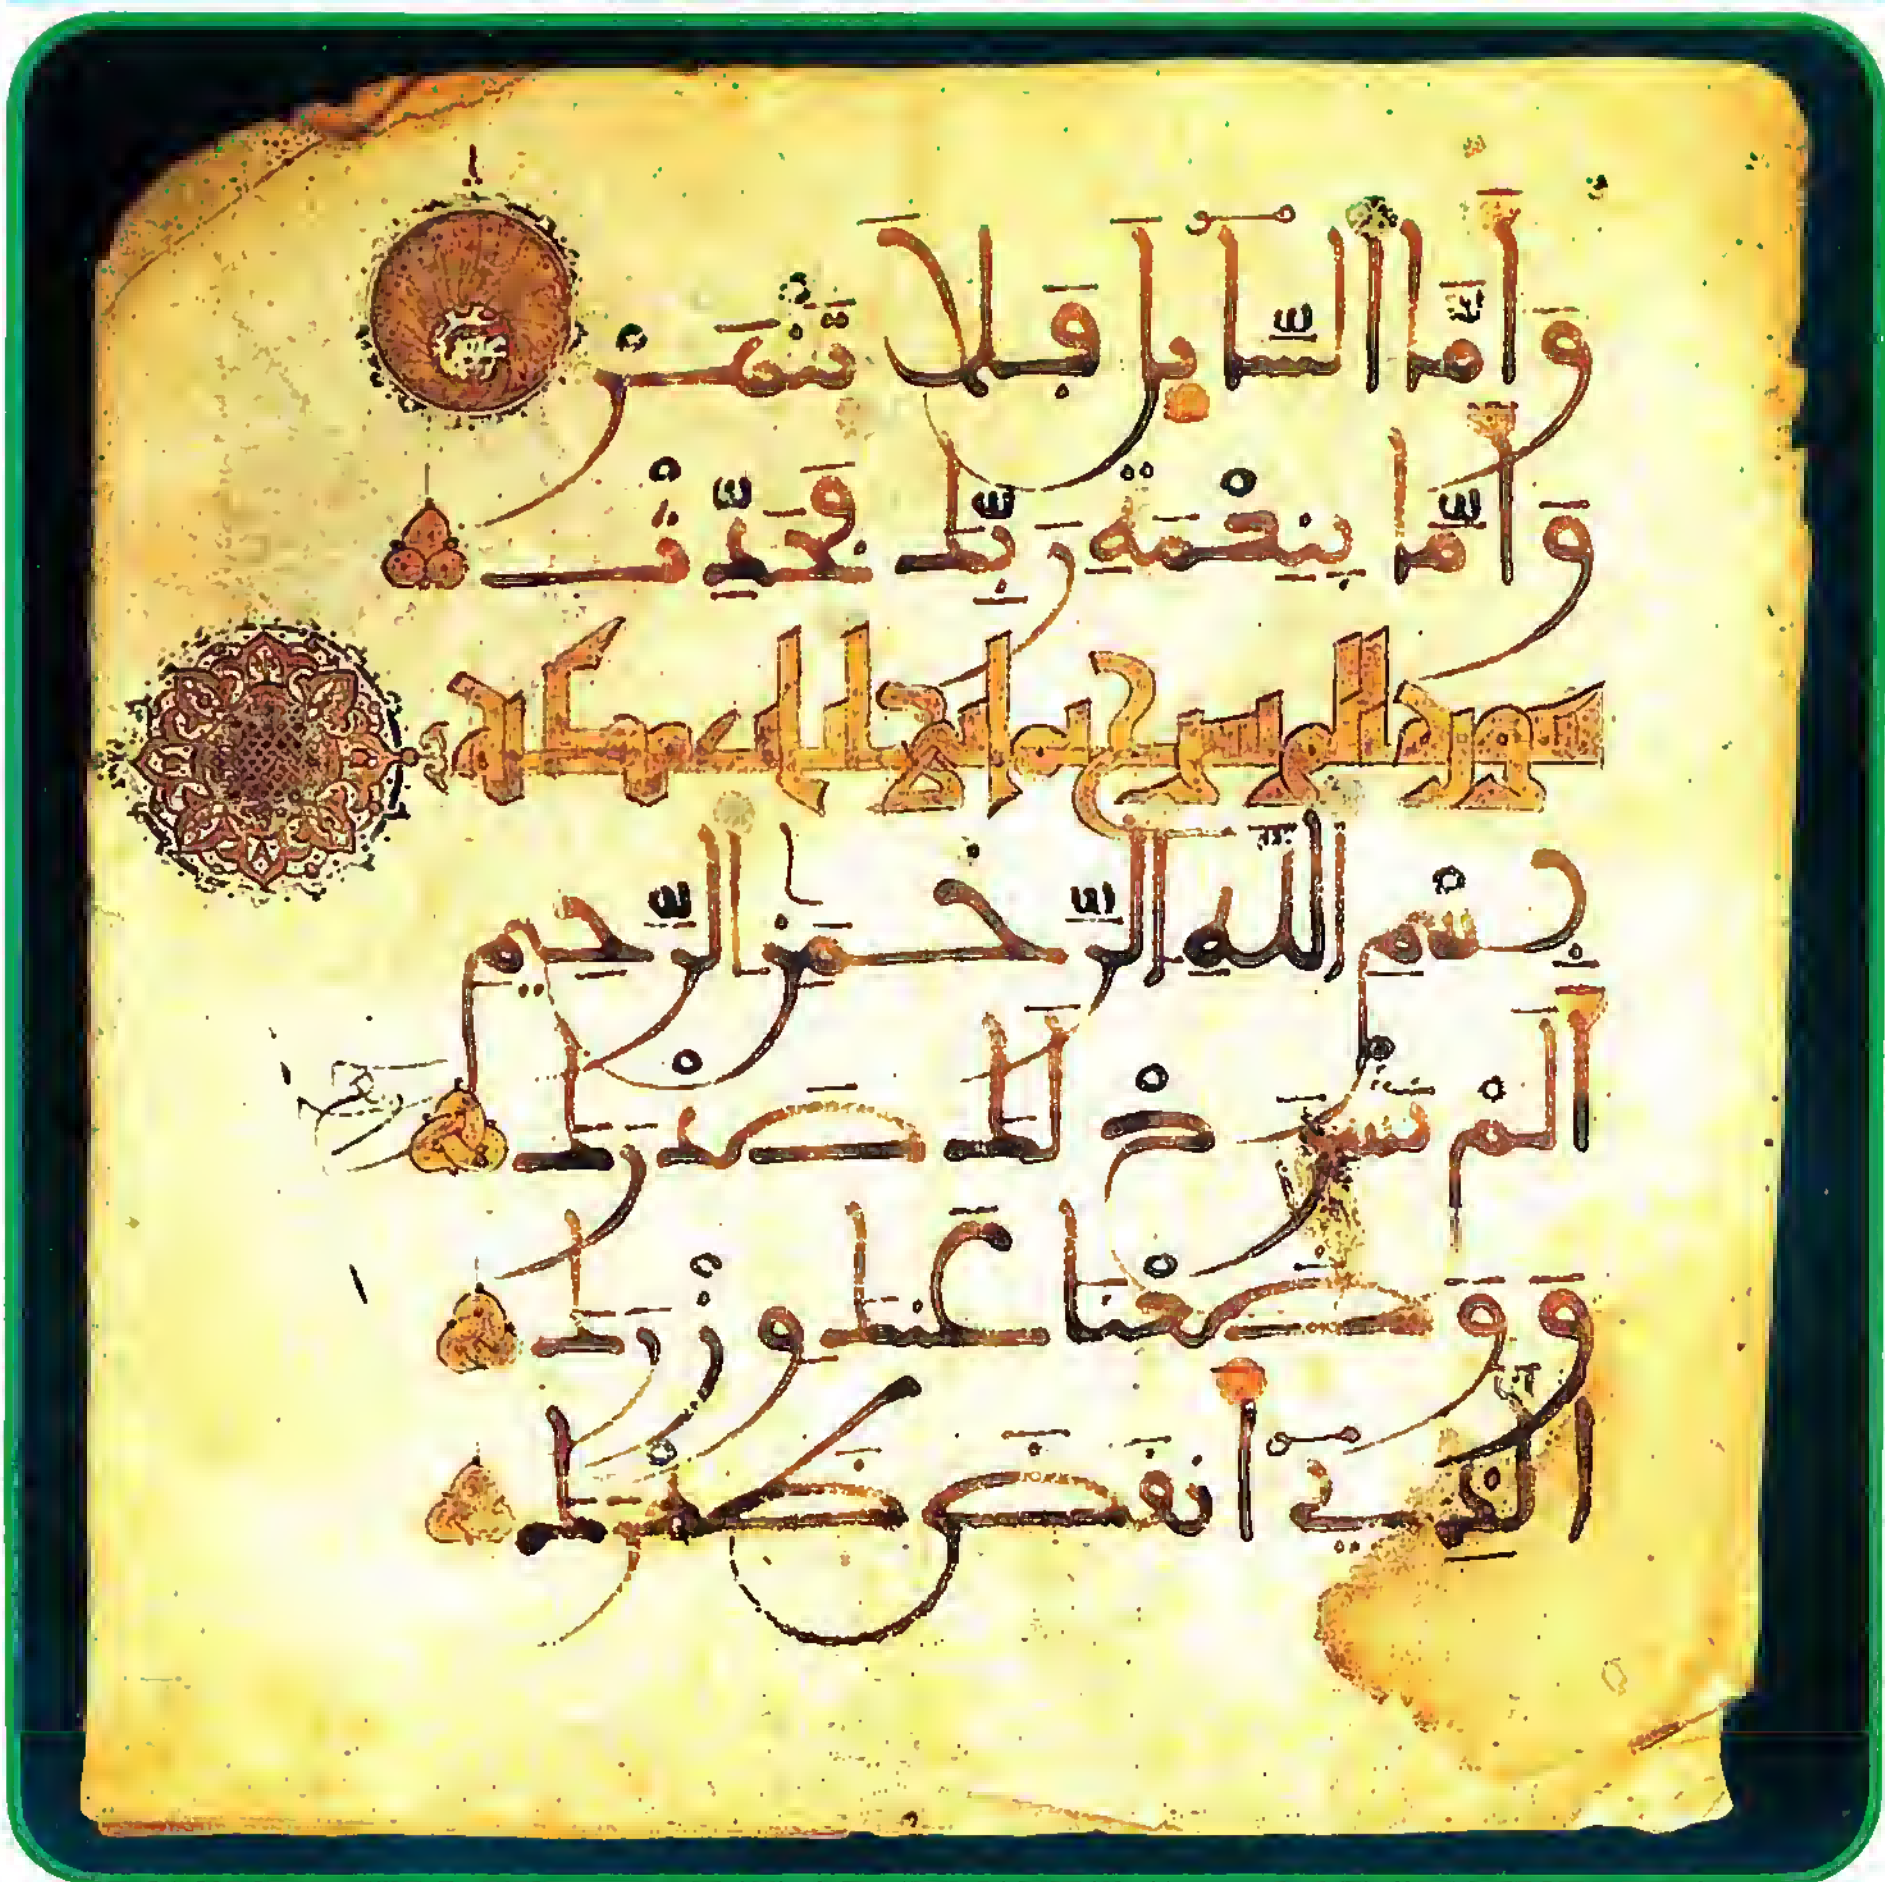 وَأَمَّا السَّآيِلَ فَلَا تَنْهَرْ
وَأَمَّا بِنِعْمَةِ رَبِّكَ فَحَدِّثْ
سورة الم نشرح مكية
بِسْمِ اللَّهِ الرَّحْمَٰنِ الرَّحِيمِ
أَلَمْ نَشْرَحْ لَكَ صَدْرَكَ
وَوَضَعْنَا عَنكَ وِزْرَكَ
الَّذِي أَنقَضَ ظَهْرَكَ